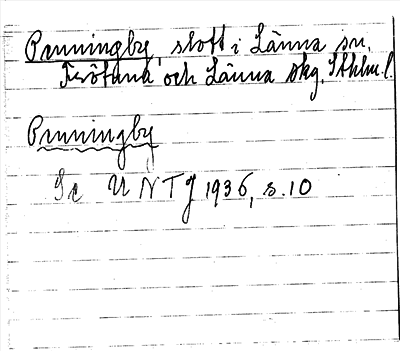 Penningby, slott i Länna sn,
Frötuna och Länna skg, Sthlm.l.
Penningby
Se UNTg 1936, s.10